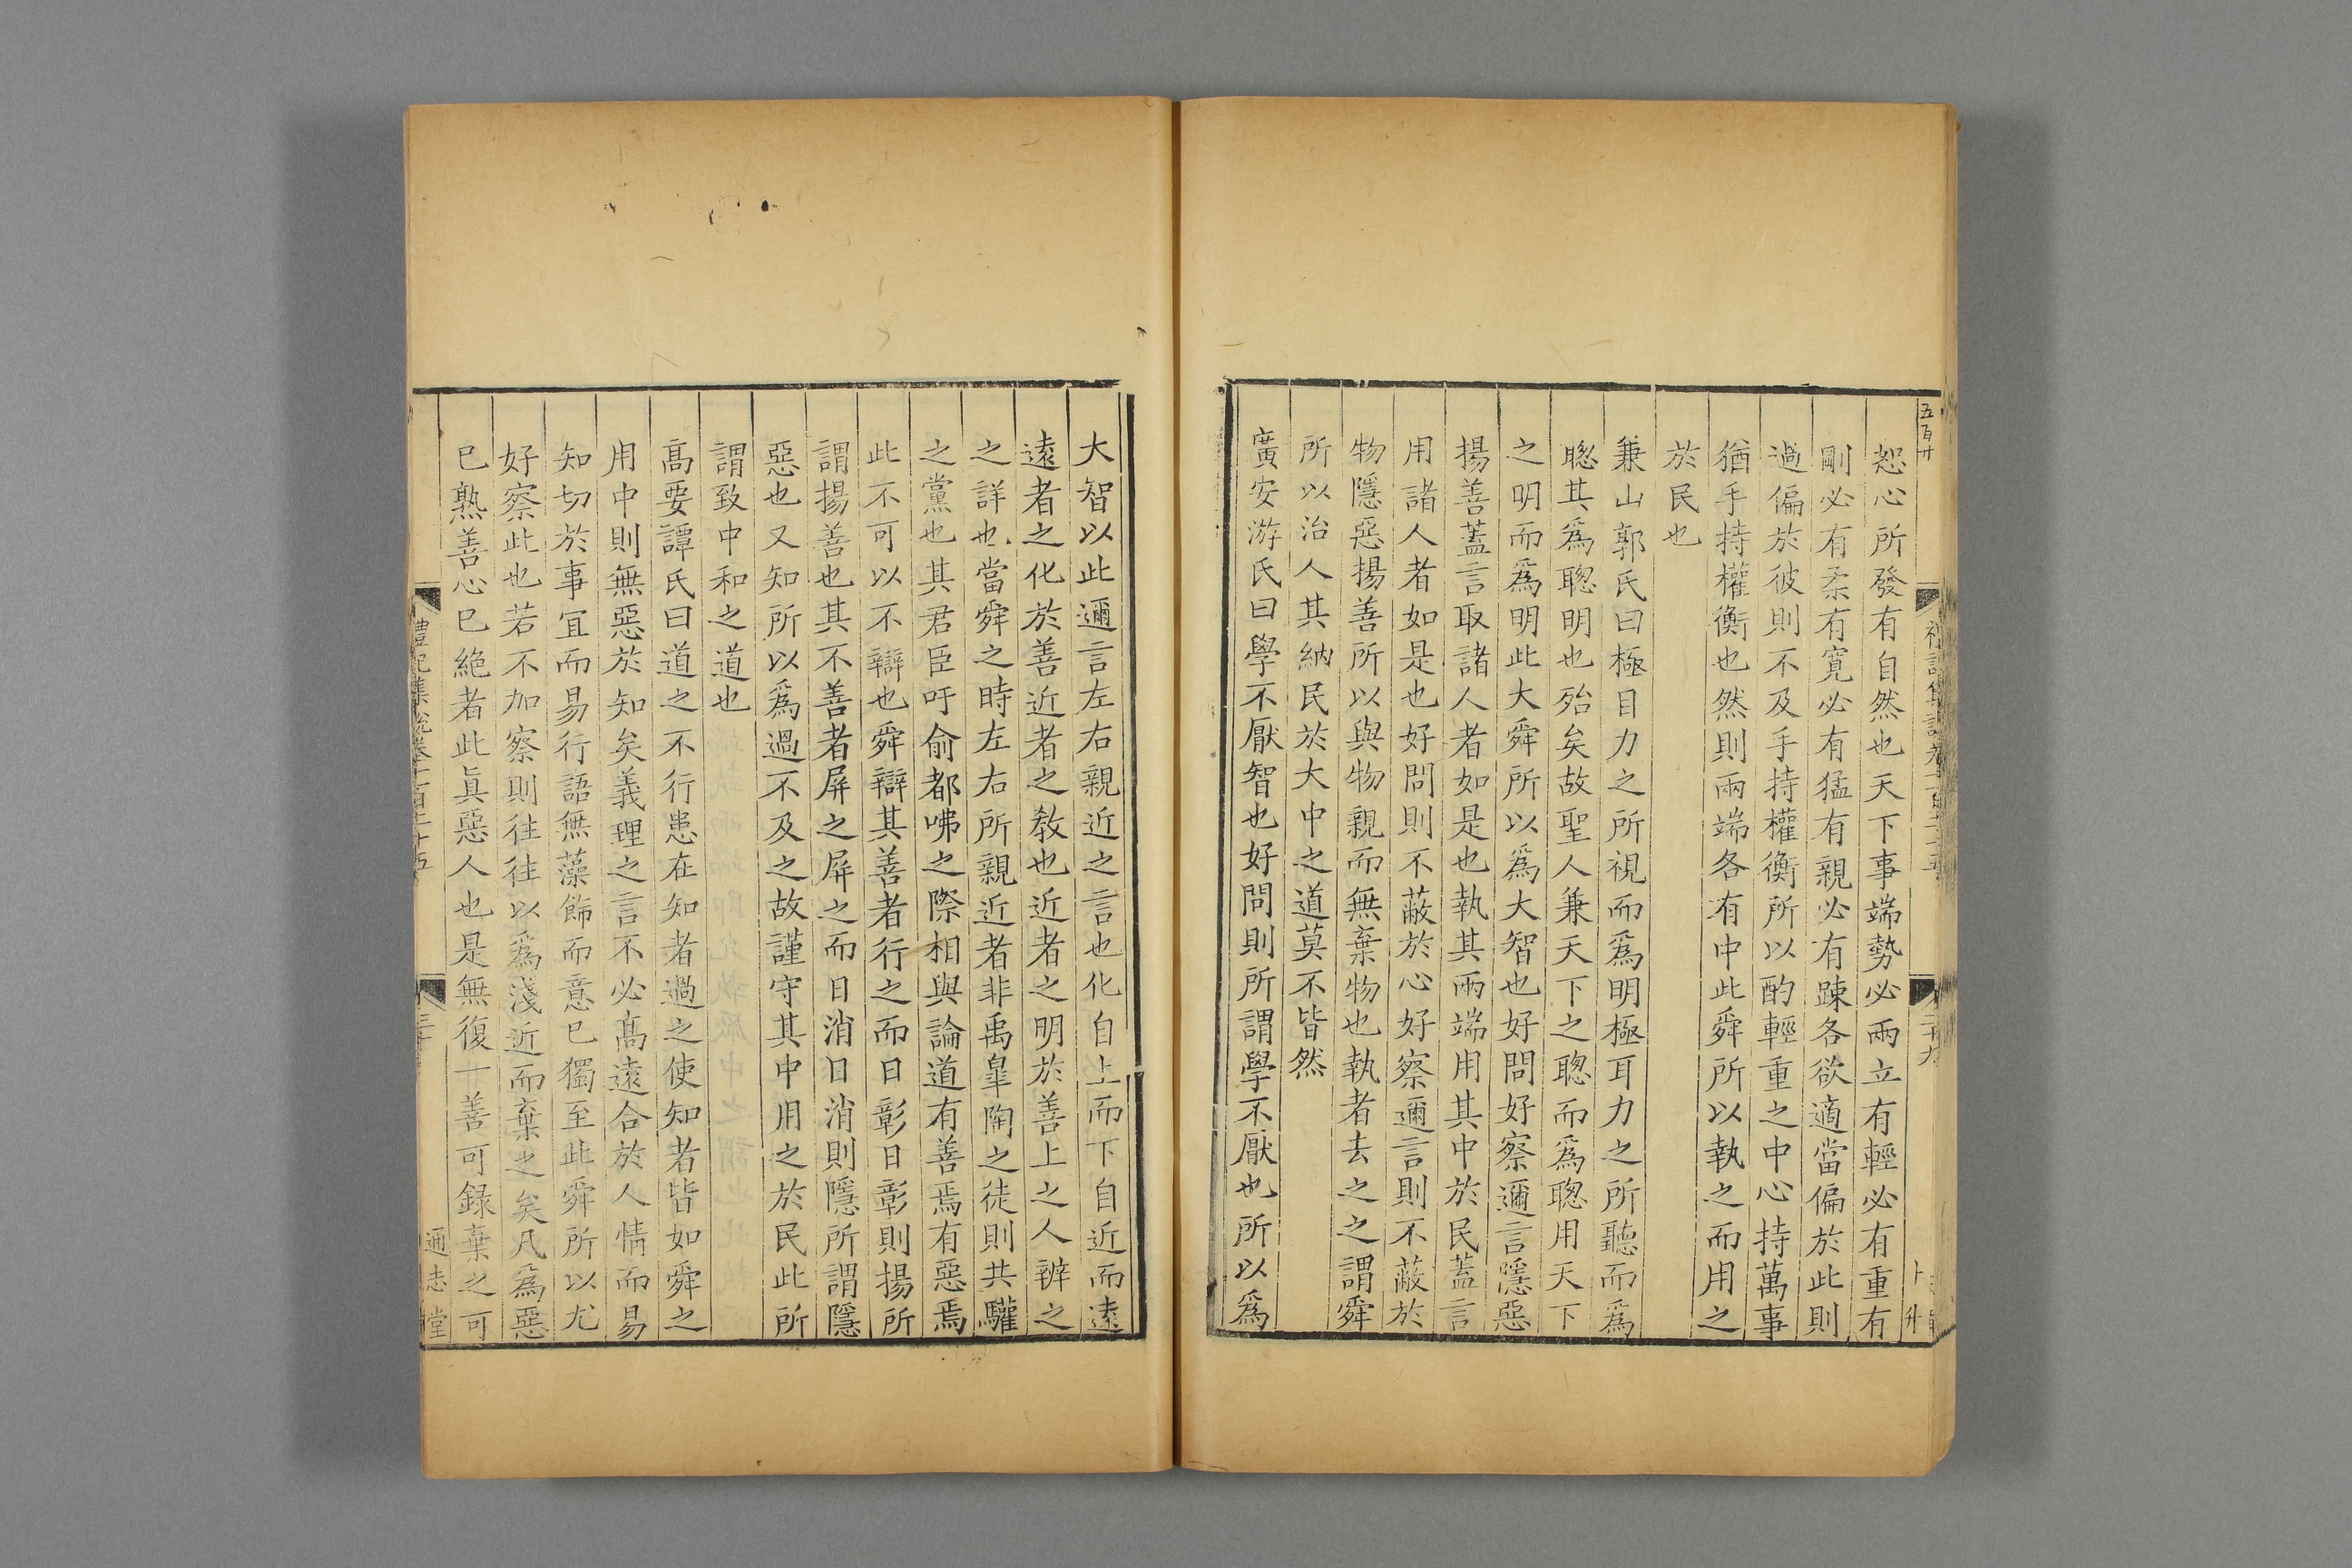 恕心所發有自然也天下事端勢必兩立有輕必有重有
剛必有柔有寬必有猛有親必有踈各欲適當偏於此則
過偏於彼則不及手持權衡所以酌輕重之中心持萬事
猶手持權衡也然則兩端各有中此舜所以執之而用之
於民也
兼山郭氏曰極目力之所視而爲明極耳力之所聽而爲
聦其爲聦明也殆矣故聖人兼天下之聦而爲聦用天下
之明而爲明此大舜所以爲大智也好問好察邇言隱惡
揚善蓋言取諸人者如是也執其兩端用其中於民蓋言
用諸人者如是也好問則不蔽於心好察邇言則不蔽於
物隱惡揚善所以與物親而無棄物也執者去之之謂舜
所以治人其納民於大中之道莫不皆然
廣安游氏曰學不厭智也好問則所謂學不厭也所以爲
大智以此邇言左右親近之言也化自上而下自近而遠
遠者之化於善近者之教也近者之明於善上之人辨之
之詳也當舜之時左右所親近者非禹臯陶之徒則共驩
之黨也其君臣吁俞都咈之際相與論道有善焉有惡焉
此不可以不辯也舜辯其善者行之而日彰日彰則揚所
謂揚善也其不善者屏之屏之而日消日消則隱所謂隱
惡也又知所以爲過不及之故謹守其中用之於民此所
謂致中和之道也
高要譚氏曰道之不行患在知者過之使知者皆如舜之
用中則無惡於知矣義理之言不必高遠合於人情而易
知切於事宜而易行語無藻飾而意已獨至此舜所以尤
好察此也若不加察則往往以爲淺近而棄之矣凡爲惡
已熟善心已絶者此眞惡人也是無復一善可録棄之可
禮記集說卷一百二十五
三十
通志堂